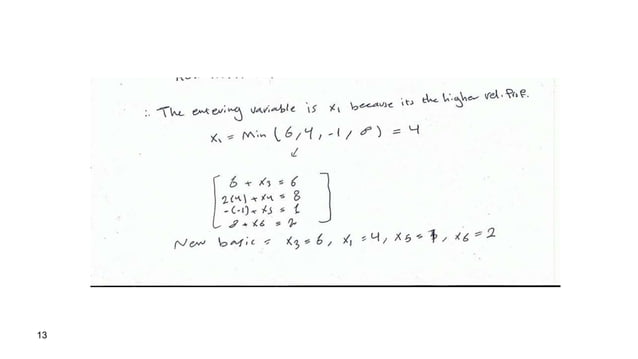 ∴ The entering variable is x₁ because its the higher rel. Prof.
x₁ = Min (6, 4, -1, ∞) = 4
↓
6 + x₃ = 6
2(4) + x₄ = 8
-(-1) + x₅ = 1
+ x₆ = 2
New basic = x₃ = 6, x₁ = 4, x₅ = 1, x₆ = 2
13